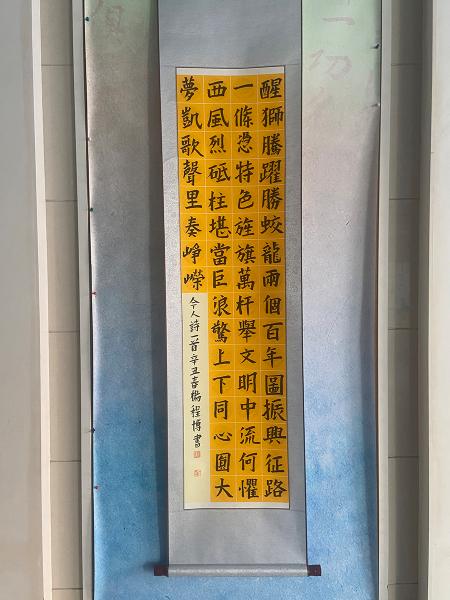 醒獅騰躍勝蛟龍兩個百年圖振興征路
一條特色旌旗萬杆舉文明中流何懼
西風烈砥柱堪當巨浪驚上下同心圓大
夢凱歌聲里奏崢嶸
今人詩一首辛丑春程博書
一切